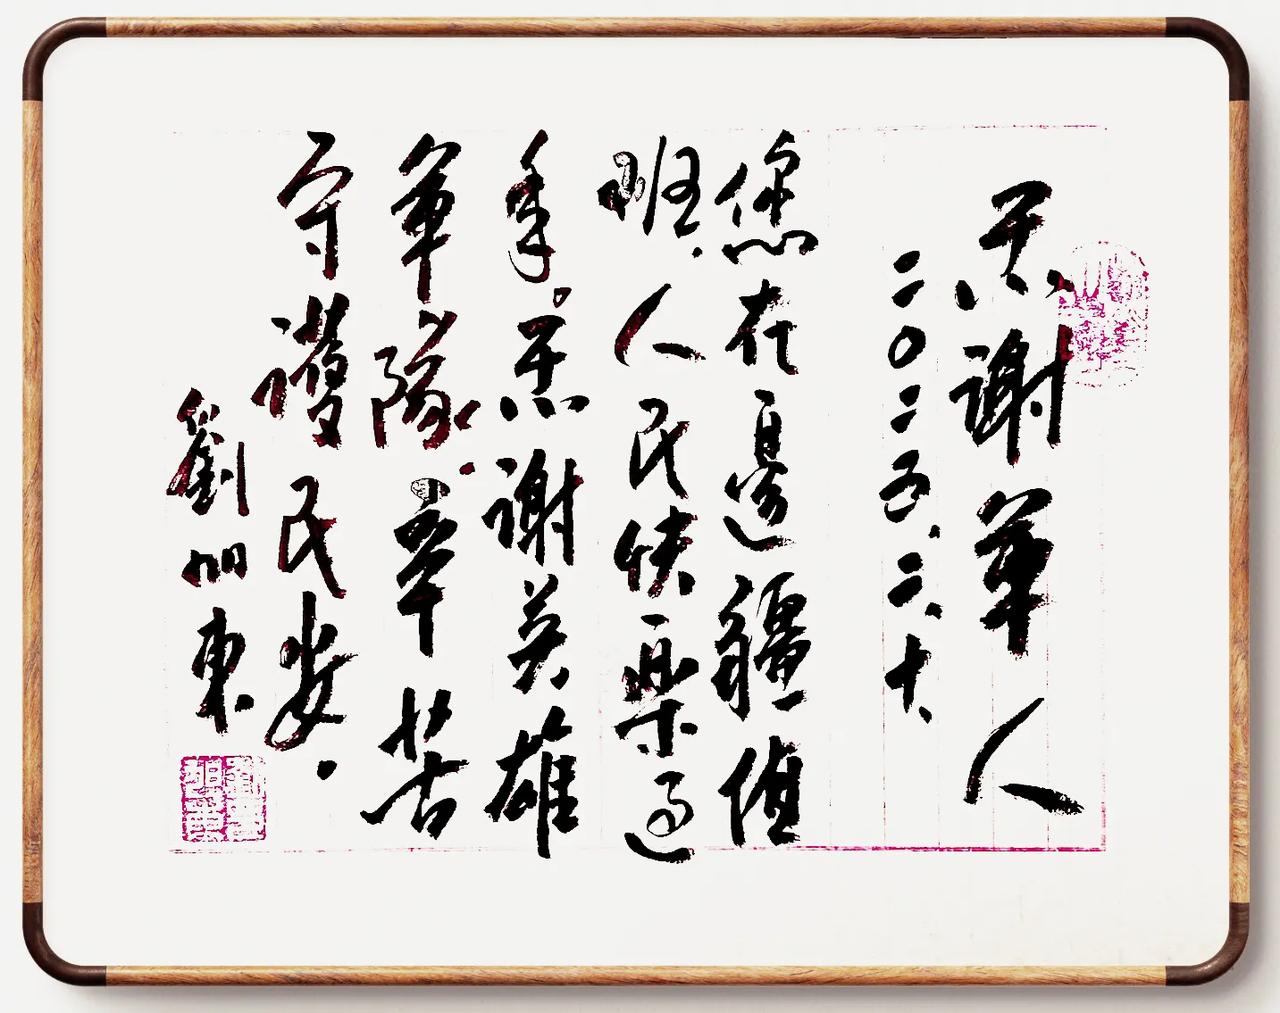 谢軍人
二〇二五.二.十.
您在邊疆值
班.人民快樂過
年.谢英雄
軍隊.辛苦
守護民安.
劉旭東